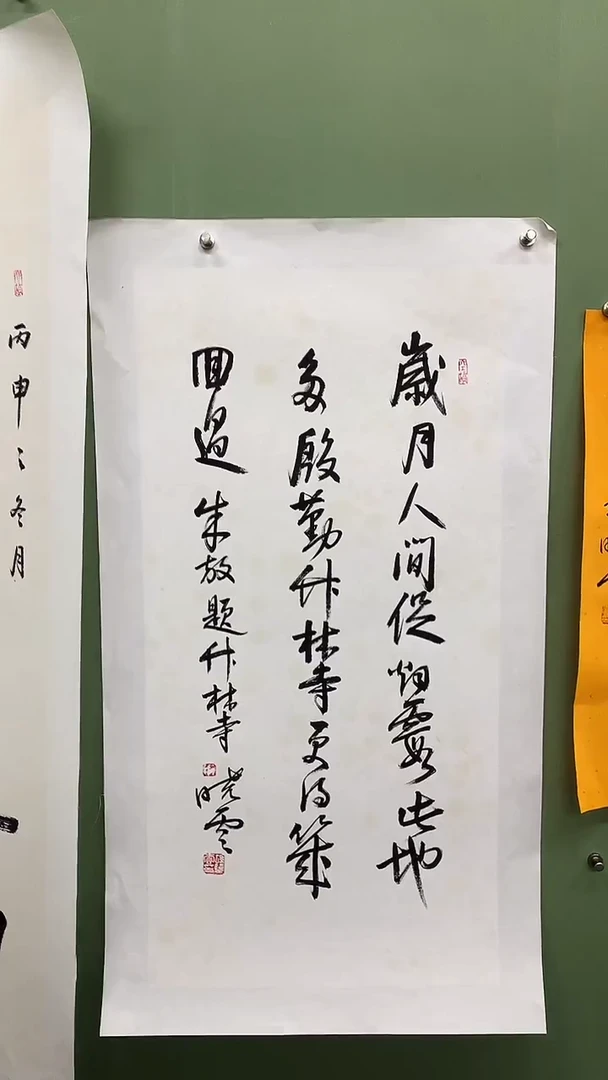 歲月人間促烟霞此地
多殷勤竹林寺更得幾
回過 朱放題竹林寺 曉雲
丙申之冬月